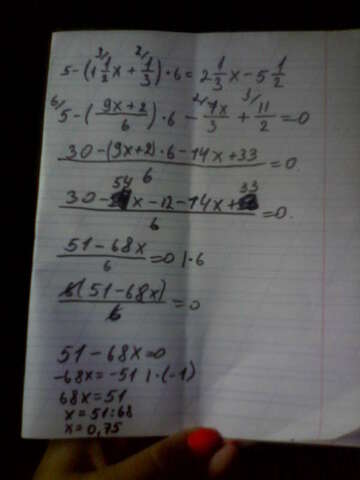 5-(1 1/2 x + 1/3)·6 = 2 1/3 x - 5 1/2
5-((9x+2)/6)·6 - 7x/3 + 11/2 = 0
(30-(9x+2)·6-14x+33)/6 = 0.
(30-54x-12-14x+33)/6 = 0.
(51-68x)/6 = 0 |·6
6(51-68x)/6 = 0
51-68x=0
-68x=-51 |·(-1)
68x=51
x=51:68
x=0,75